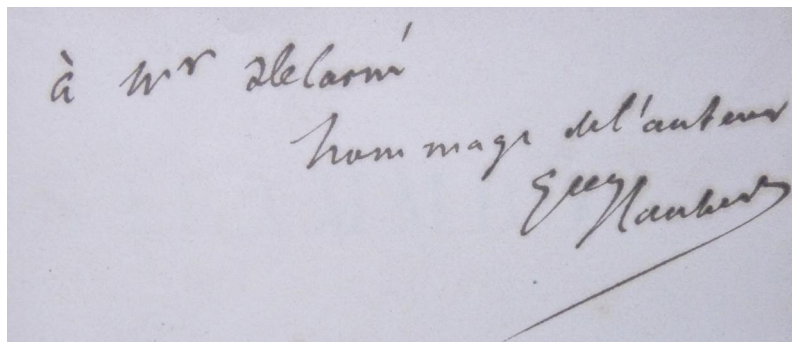 à Mr Delasni
hommage de l'auteur
Gve Flaubert